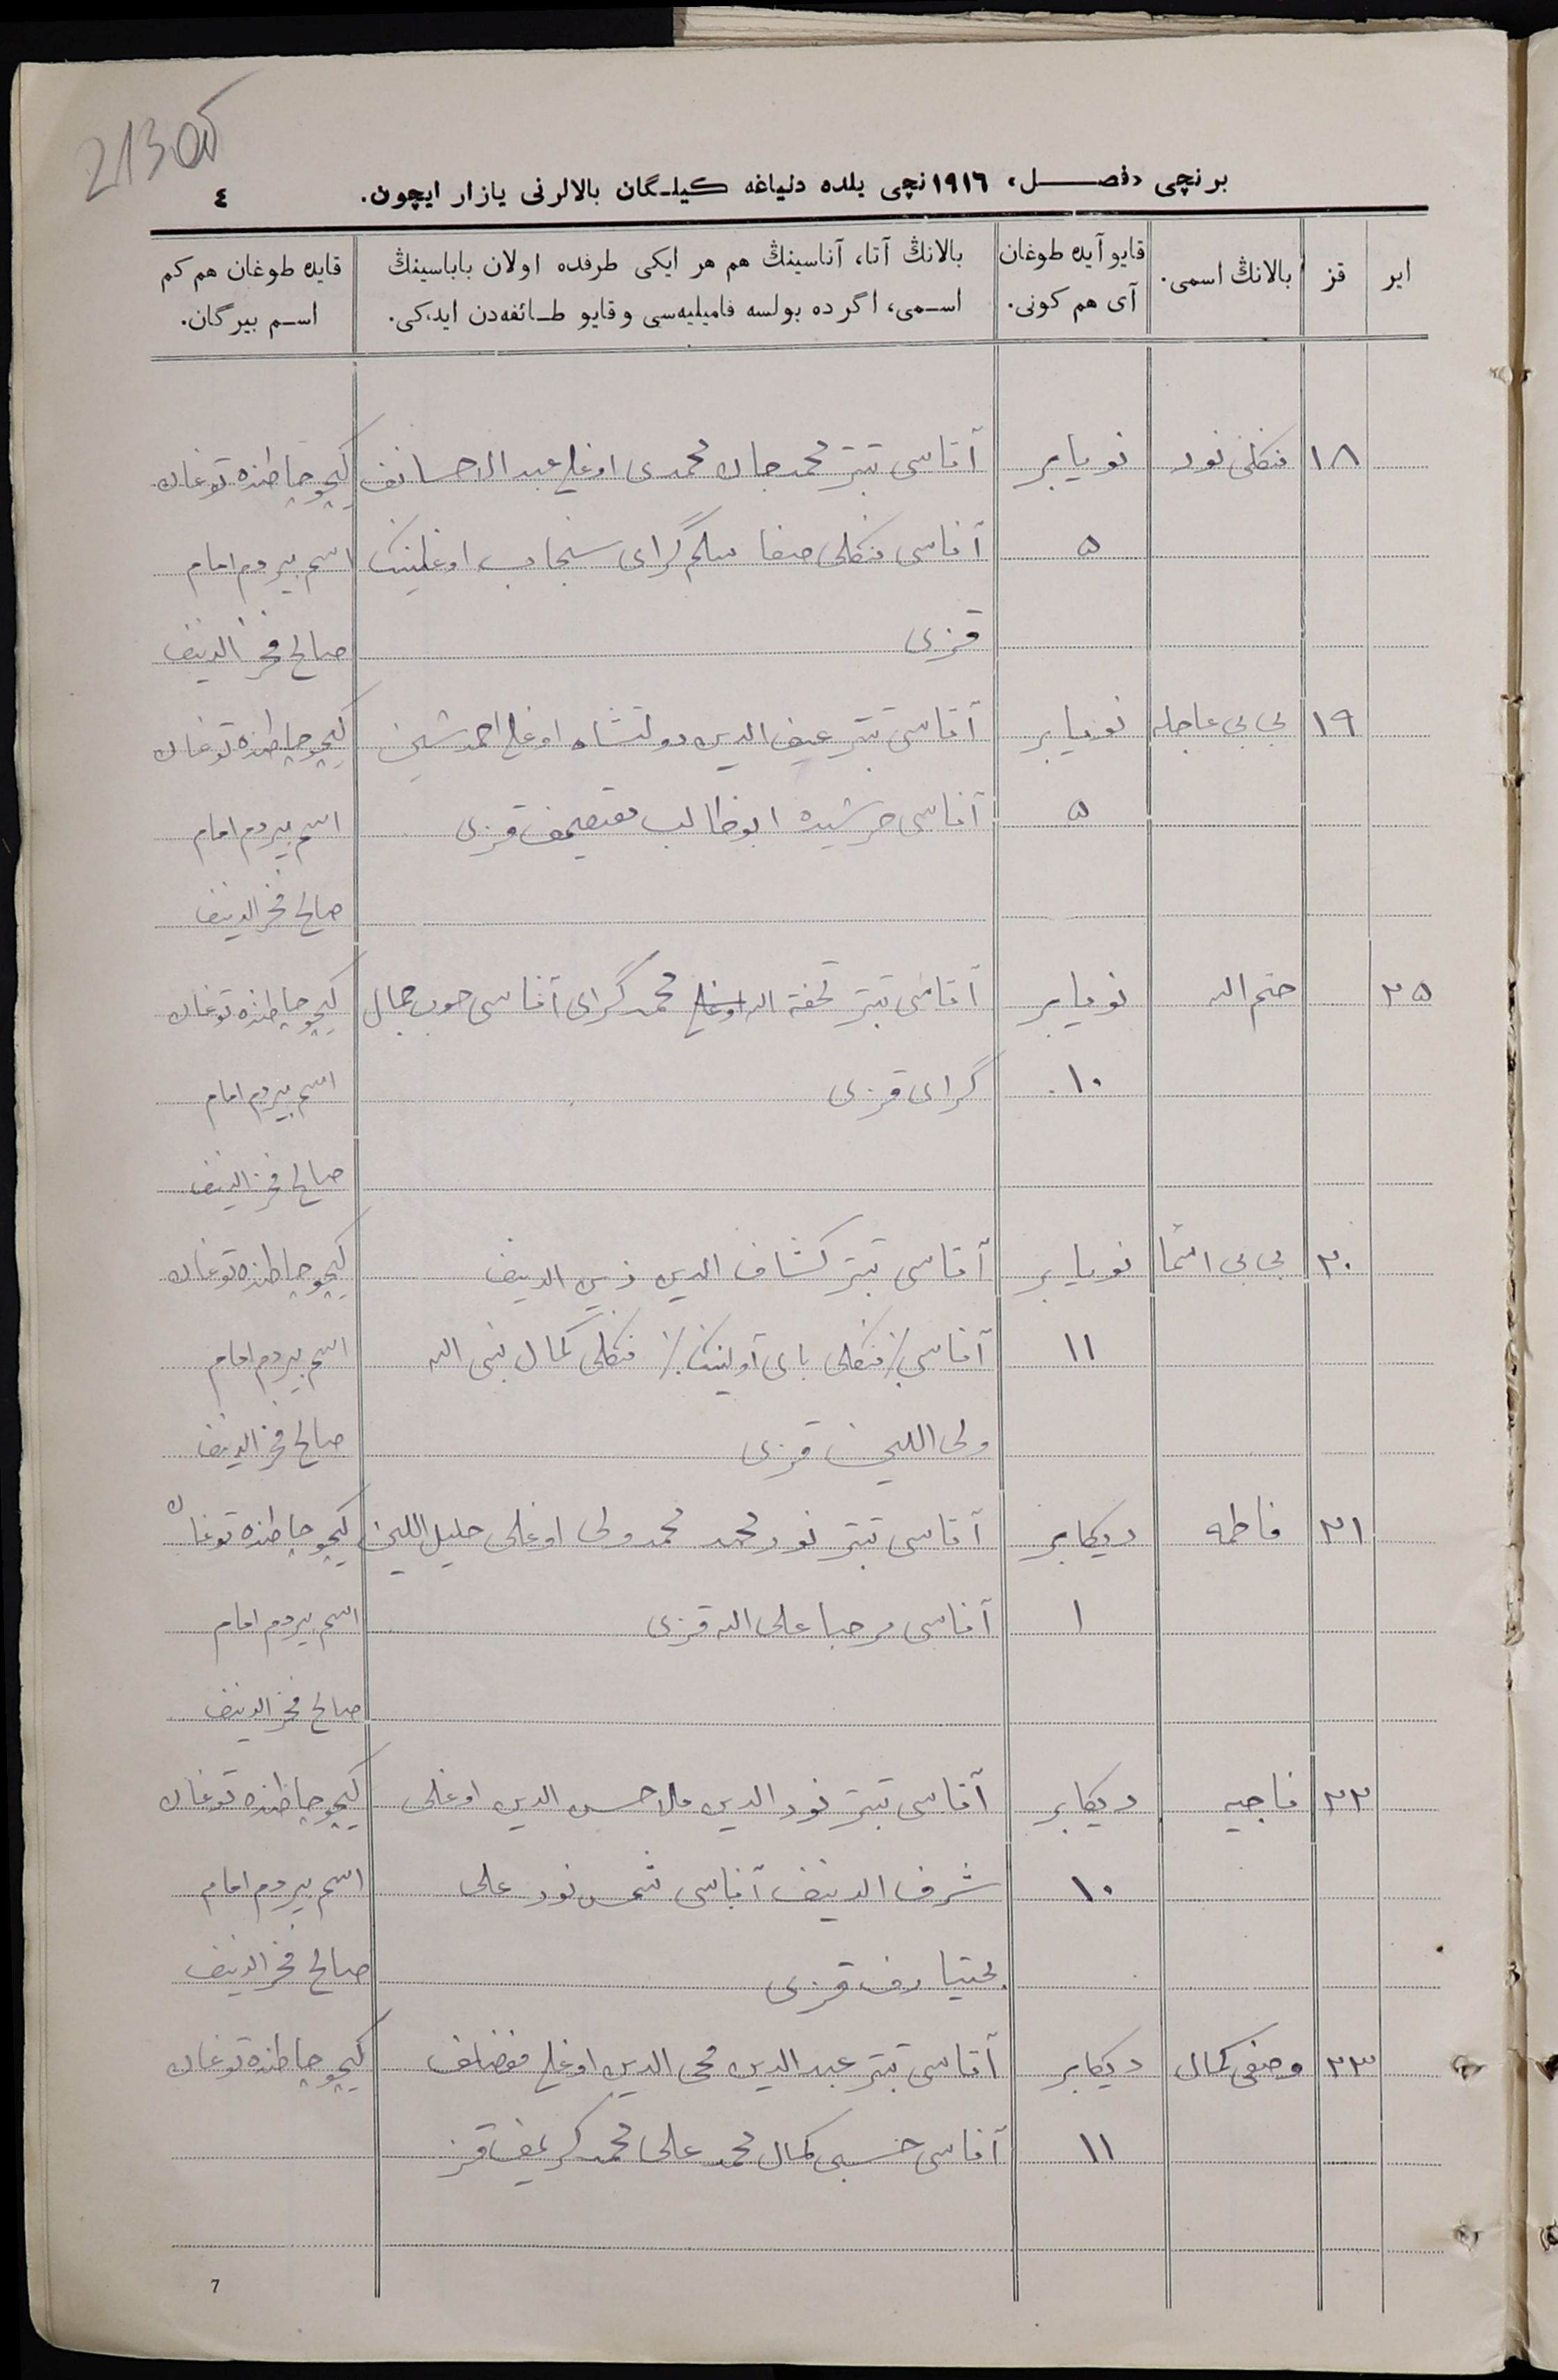 213 об
برنچی «فصل» ١٩١٦نچی یلده دنیاغه کیلگان بالالرنی یازار ایچون.
٤
ایر
قز
بالانڭ اسمی.
قایو آیده طوغان
آی هم کونی.
بالانڭ آتا، آناسینڭ هم هر ایکی طرفده اولان باباسینڭ
اسمی، اگر ده بولسه فامیلیه‌سی و قایو طائفه‌دن ایدکی.
قایده طوغان هم کم
اسم بیرگان.
١٨ منکلی نور نویابر آتاسی تبتر محمدجان محمدی اوغلی عبدالاحسانف کیچو چاطنده توغان
٥ آناسی منکلی صفا سلمگرای سنجاب اوغلینک اسم بیردم امام
قزی صالح فخرالدینف
١٩ بی بی عاجله نویابر آتاسی تبتر دولتشاه اوغلی احمدشین کیچو چاطنده توغان
٥ آناسی ابوطالب قزی اسم بیردم امام
صالح فخرالدینف
٢٥ ختم الله نویابر آتاسی تبتر تحفة الله اوغلی محمدگرای آناسی حوب جمال کیچو چاطنده توغان
١٠ گرای قزی اسم بیردم امام
صالح فخرالدینف
٢٠ بی بی اسما نویابر آتاسی تبتر کشاف الدین زین الدینف کیچو چاطنده توغان
١١ آناسی منکلی بای آولینک منکلی کمال نبی الله اسم بیردم امام
ولی اللین قزی صالح فخرالدینف
٢١ فاطمه دیکابر آتاسی تبتر نورمحمد محمدولی اوغلی خلیل اللین کیچو چاطنده توغان
١ آناسی مرحبا علی الله قزی اسم بیردم امام
صالح فخرالدینف
٢٢ ناجیه دیکابر آتاسی تبتر نورالدین ملا حسن الدین اوغلی کیچو چاطنده توغان
١٠ شرف الدینف آناسی شمس نور علی اسم بیردم امام
بختیارف قزی صالح فخرالدینف
٢٣ وصفی کمال دیکابر آتاسی تبتر عبدالدین محی الدین اوغلی مفضلف کیچو چاطنده توغان
١١ آناسی حسبی کمال محمد علی محمدکریمف قز
7